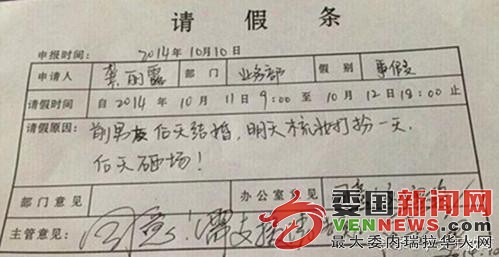 请 假 条
申报时间： 2014年10月10日
申请人 龚丽露 部门 业务部 假别 事假
请假时间 自2014年10月11日9:00至10月12日18:00止
请假原因：前男友后天结婚，明天梳妆打扮一天，
后天砸场！
部门意见 办公室意见
主管意见： 同意！需支援
委国新闻网
VENNEWS.COM
最大委内瑞拉华人网